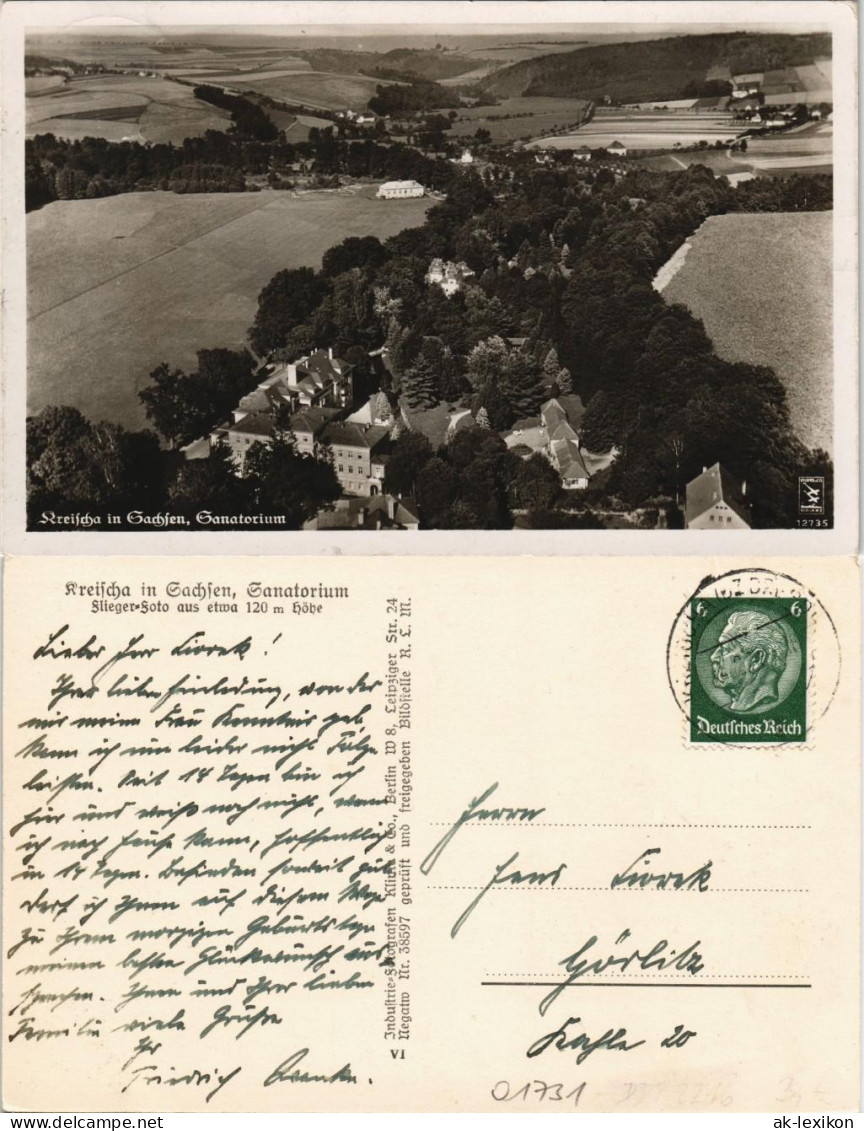 Kreischa in Sachsen, Sanatorium
12735
Kreischa in Sachsen, Sanatorium
Flieger-Foto aus etwa 120 m Höhe
Lieber Herr Fiorek!
Ihrer lieben Einladung, von der
mir meine Frau Kenntnis gab,
kann ich nun leider nicht Folge
leisten. Seit 14 Tagen bin ich
hier und weiß noch nicht, wann
ich nach Hause kann, hoffentlich
in 14 Tagen. Befinden soweit gut.
Darf ich Ihnen auf diesem Wege
zu Ihrem morgigen Geburtstage
meinen besten Glückwunsch aus-
sprechen. Ihnen und Ihrer lieben
Familie viele Grüße
Ihr
Friedrich
Industrie-Fotografen Klinke & Co., Berlin W 8, Leipziger Str. 24
Negativ Nr. 38597 geprüft und freigegeben Bildstelle R. L. M.
VI
6 6
Deutsches Reich
Herrn
Jens Fiorek
Görlitz
Kahle 20
01731
ak-lexikon